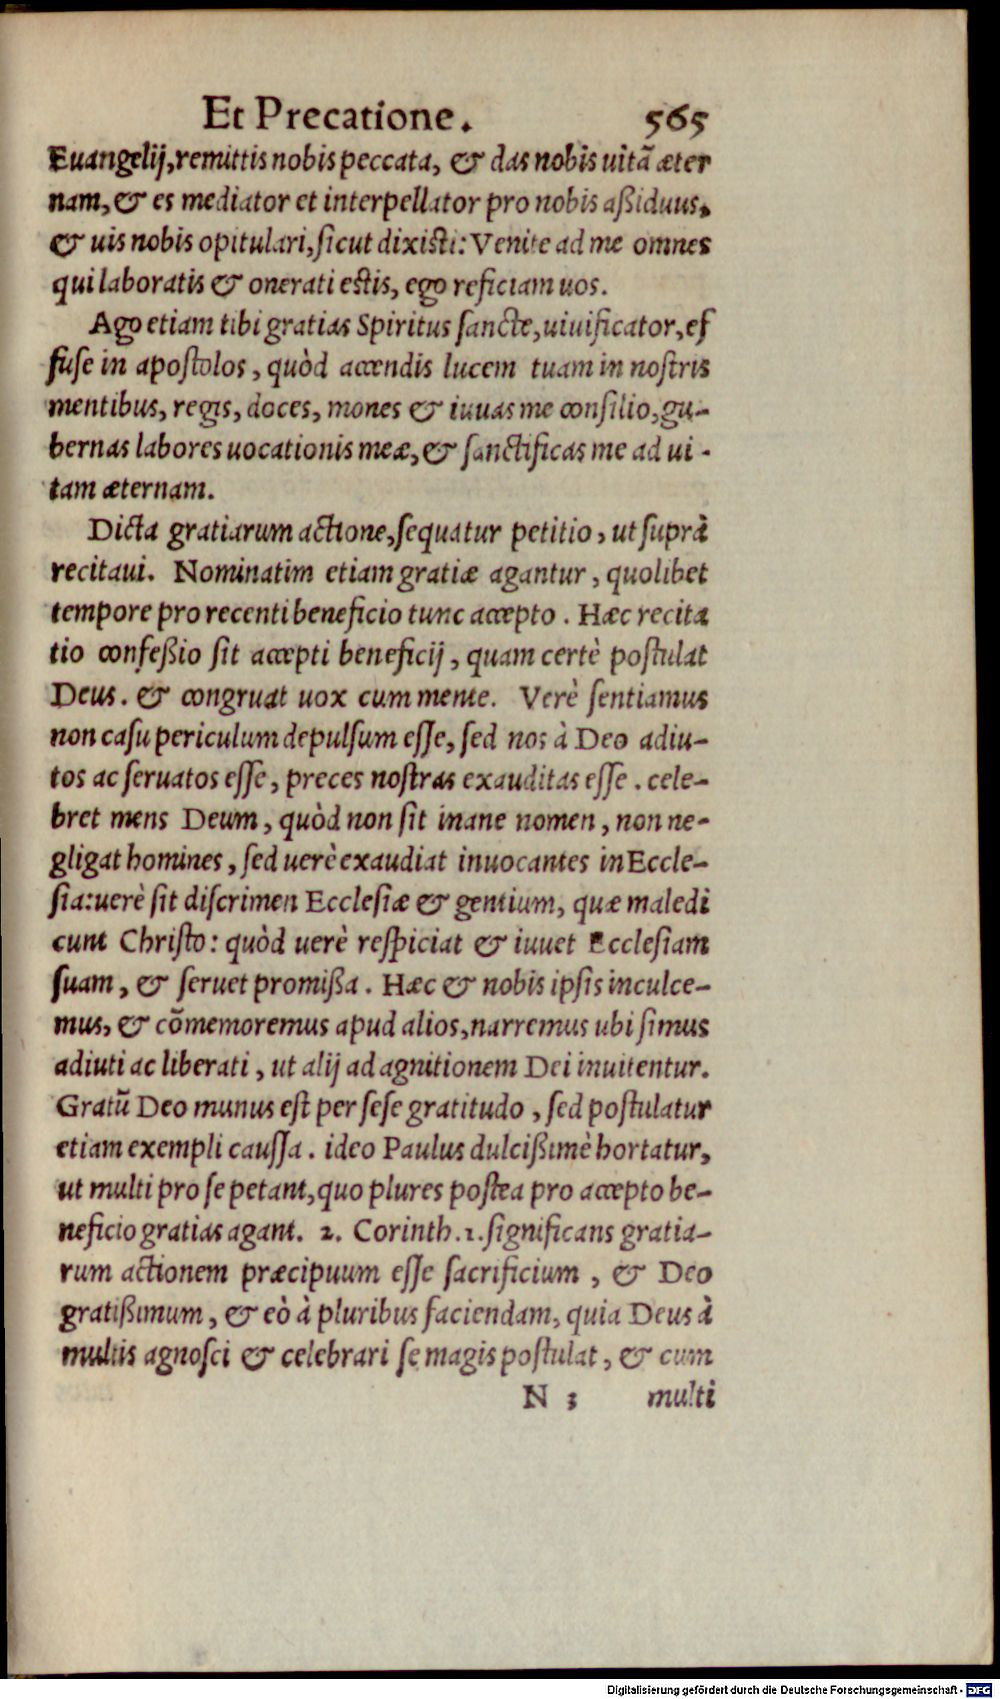 Et Precatione. 565
Euangelij, remittis nobis peccata, & das nobis uitã æter
nam, & es mediator et interpellator pro nobis aßiduus,
& uis nobis opitulari, ſicut dixiſti: Venite ad me omnes
qui laboratis & onerati eſtis, ego reficiam uos.
Ago etiam tibi gratias Spiritus ſancte, uiuificator, ef
fuſe in apoſtolos, quòd accendis lucem tuam in noſtris
mentibus, regis, doces, mones & iuuas me conſilio, gu-
bernas labores uocationis meæ, & ſanctificas me ad ui-
tam æternam.
Dicta gratiarum actione, ſequatur petitio, ut ſuprà
recitaui. Nominatim etiam gratiæ agantur, quolibet
tempore pro recenti beneficio tunc accepto. Hæc recita
tio confeßio ſit accepti beneficij, quam certè poſtulat
Deus. & congruat uox cum mente. Verè ſentiamus
non caſu periculum depulſum eſſe, ſed nos à Deo adiu-
tos ac ſeruatos eſſe, preces noſtras exauditas eſſe. cele-
bret mens Deum, quòd non ſit inane nomen, non ne-
gligat homines, ſed uerè exaudiat inuocantes in Eccle-
ſia: uerè ſit diſcrimen Eccleſiæ & gentium, quæ maledi
cunt Chriſto: quòd uerè reſpiciat & iuuet Eccleſiam
ſuam, & ſeruet promißa. Hæc & nobis ipſis inculce-
mus, & cõmemoremus apud alios, narremus ubi ſimus
adiuti ac liberati, ut alij ad agnitionem Dei inuitentur.
Gratũ Deo munus eſt per ſeſe gratitudo, ſed poſtulatur
etiam exempli cauſſa. ideo Paulus dulcißimè hortatur,
ut multi pro ſe petant, quo plures poſtea pro accepto be-
neficio gratias agant. 2. Corinth. 1. ſignificans gratia-
rum actionem præcipuum eſſe ſacrificium, & Deo
gratißimum, & eò à pluribus faciendam, quia Deus à
multis agnoſci & celebrari ſe magis poſtulat, & cum
N 3 multi
Digitalisierung gefördert durch die Deutsche Forschungsgemeinschaft - DFG